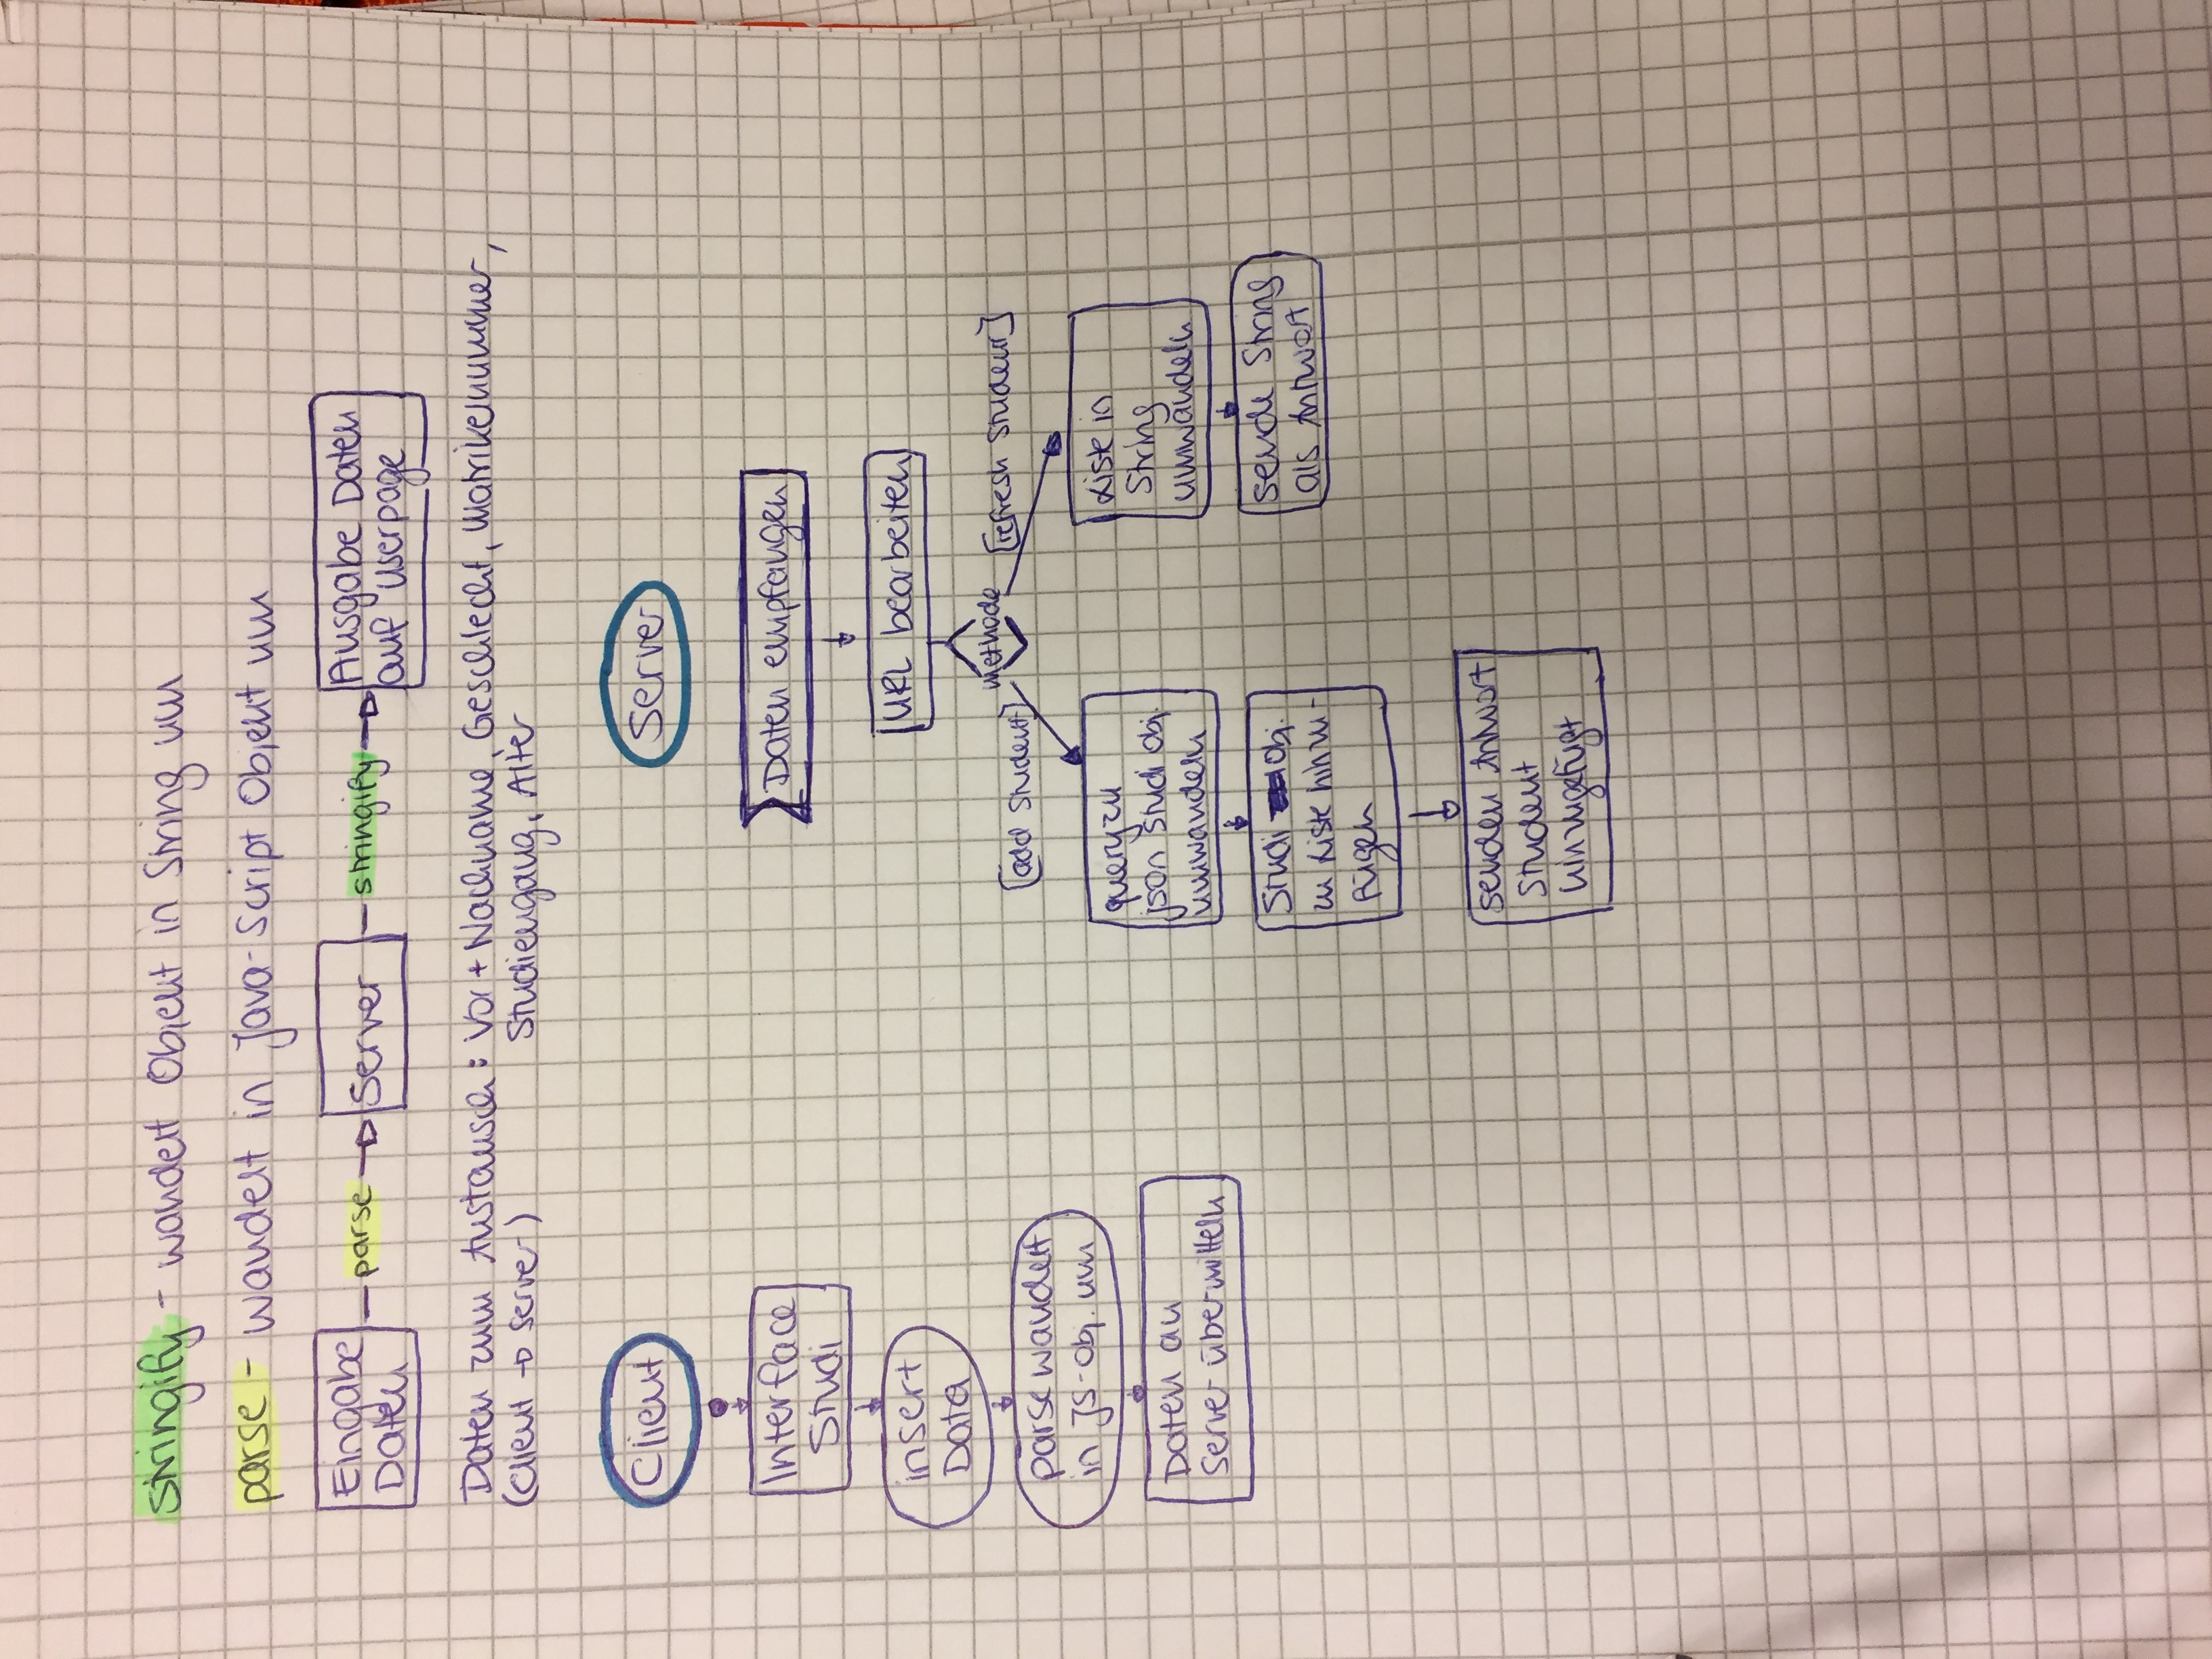 stringify - wandelt Objekt in String um
parse - wandelt in Java-Script Objekt um
Eingabe Daten
parse
Server
stringify
Ausgabe Daten
auf Userpage
Daten zum Austausch: Vor + Nachname, Geschlecht, Matrikelnummer,
(Client → Server) Studiengang, Alter
Client
Interface
Studi
insert
Data
parse wandelt
in JS-Obj. um
Daten an
Server übermitteln
Server
Daten empfangen
URL bearbeiten
methode
[add Student]
[refresh Student]
query zu
json Studi Obj.
umwandeln
Studi Obj.
zu Liste hinzu-
fügen
senden Antwort
Student
hinzugefügt
Liste in
String
umwandeln
sende String
als Antwort